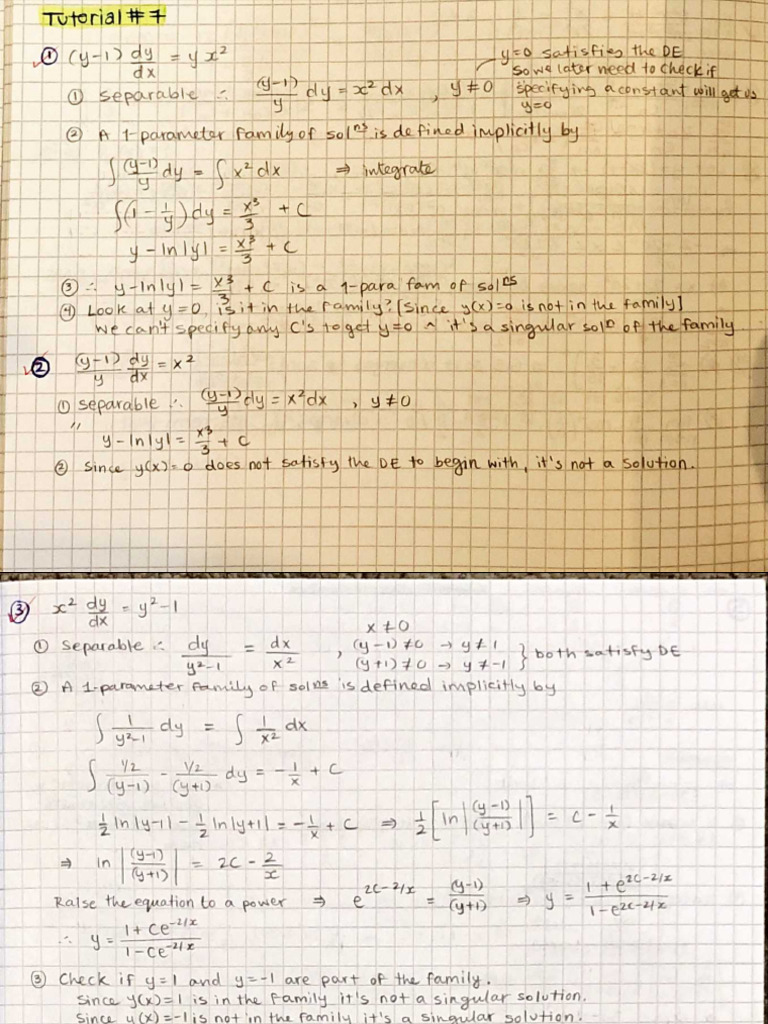 Tutorial # 7
① (y-1) dy/dx = y x²
y=0 satisfies the DE
so we later need to check if
specifying a constant will get us
y=0
① separable ∴ (y-1)/y dy = x² dx , y ≠ 0
② A 1-parameter family of solⁿˢ is defined implicitly by
∫ (y-1)/y dy = ∫ x² dx ⇒ integrate
∫(1 - 1/y) dy = x³/3 + C
y - ln|y| = x³/3 + C
③ ∴ y-ln|y| = x³/3 + C is a 1-para fam of solⁿˢ
④ Look at y=0, is it in the family? [since y(x)=0 is not in the family]
we can't specify any C's to get y=0 ^ it's a singular solⁿ of the family
② (y-1)/y dy/dx = x²
① separable ∴ (y-1)/y dy = x² dx , y ≠ 0
"
y-ln|y| = x³/3 + C
② since y(x)=0 does not satisfy the DE to begin with, it's not a solution.
③ x² dy/dx = y²-1
① separable ∴ dy/y²-1 = dx/x² , x ≠ 0
(y-1) ≠ 0 → y ≠ 1
(y+1) ≠ 0 → y ≠ -1 } both satisfy DE
② A 1-parameter family of solⁿˢ is defined implicitly by
∫ 1/y²-1 dy = ∫ 1/x² dx
∫ 1/2/(y-1) - 1/2/(y+1) dy = -1/x + C
1/2 ln|y-1| - 1/2 ln|y+1| = -1/x + C ⇒ 1/2 [ln|(y-1)/(y+1)|] = C - 1/x
⇒ ln |(y-1)/(y+1)| = 2C - 2/x
Raise the equation to a power ⇒ e^2C-2/x = (y-1)/(y+1) ⇒ y = 1+e^2C-2/x / 1-e^2C-2/x
∴ y = 1+Ce^-2/x / 1-Ce^-2/x
③ Check if y=1 and y=-1 are part of the family.
since y(x)=1 is in the family it's not a singular solution.
since y(x)=-1 is not in the family it's a singular solution.